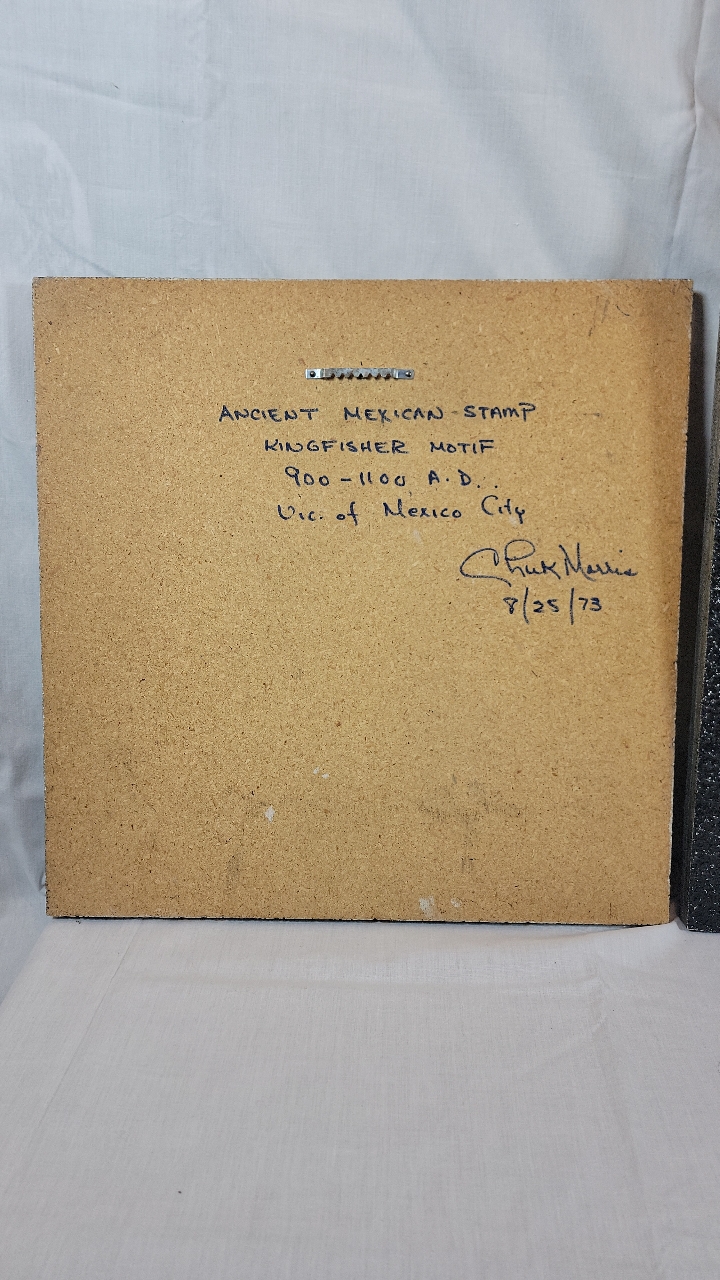 ANCIENT MEXICAN STAMP
KINGFISHER MOTIF
900-1100 A.D.
Vic. of Mexico City
Chuck Morris
8/25/73